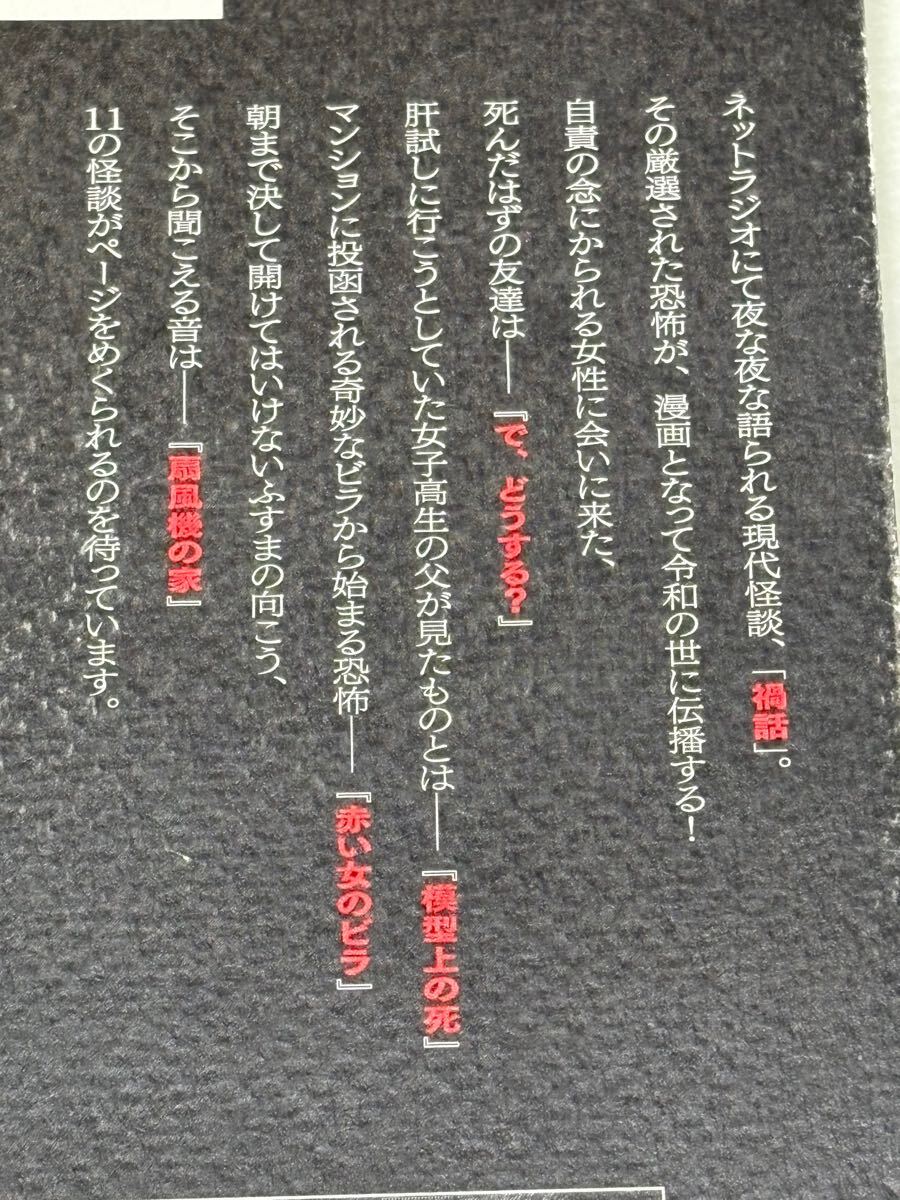 ネットラジオにて夜な夜な語られる現代怪談、「禍話」。
その厳選された恐怖が、漫画となって令和の世に伝播する！
自責の念にかられる女性に会いに来た、
死んだはずの友達は――『で、どうする？』
肝試しに行こうとしていた女子高生の父が見たものとは――『模型上の死』
マンションに投函される奇妙なビラから始まる恐怖――『赤い女のビラ』
朝まで決して開けてはいけないふすまの向こう、
そこから聞こえる音は――『扇風機の家』
11の怪談がページをめくられるのを待っています。